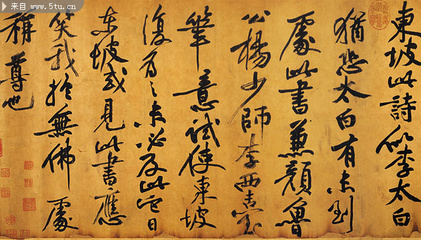 来自 - www.5tu.cn
東坡此詩似李太白
猶恐太白有未到
處此書兼顏魯
公楊少師李西臺
筆意試使東坡
復為之未必及此它日
東坡或見此書應
笑我於無佛處
稱尊也